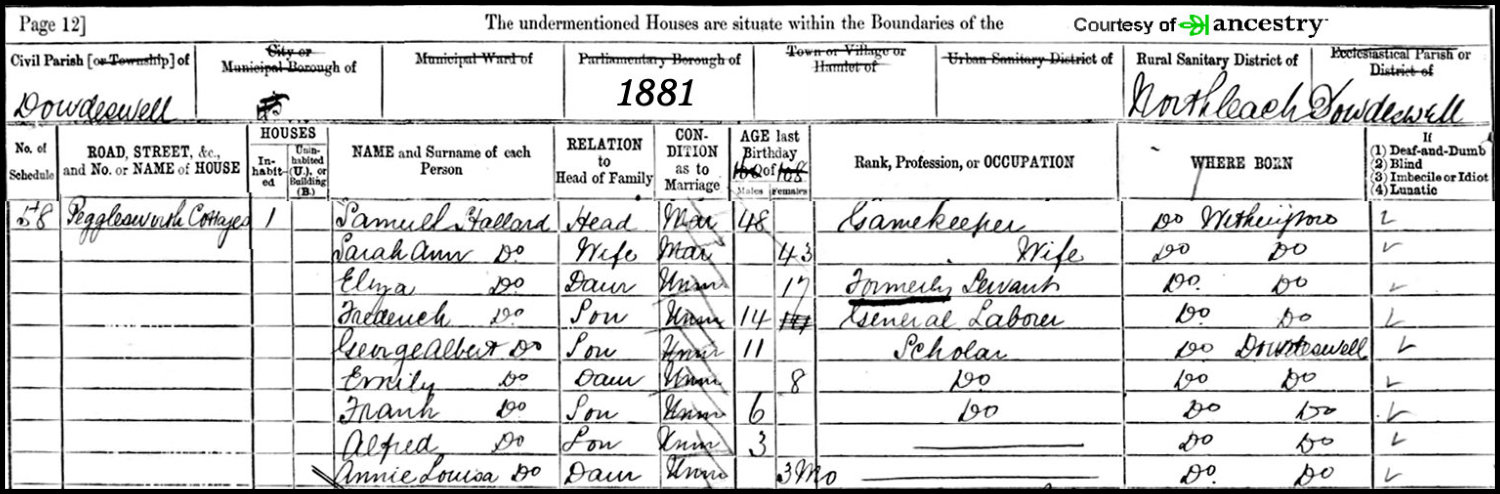 Page 12] The undermentioned Houses are situate within the Boundaries of the Courtesy of ancestry
Civil Parish [or Township] of City or Municipal Borough of Municipal Ward of Parliamentary Borough of Town or Village or Hamlet of Urban Sanitary District of Rural Sanitary District of Ecclesiastical Parish or District of
Dowdeswell 1881 Northleach Dowdeswell
No. of Schedule ROAD, STREET, &c., and No. or NAME of HOUSE HOUSES In-habit-ed Unin-habited (U.), or Building (B.) NAME and Surname of each Person RELATION to Head of Family CON-DITION as to Marriage AGE last Birthday of Males Females Rank, Profession, or OCCUPATION WHERE BORN If (1) Deaf-and-Dumb (2) Blind (3) Imbecile or Idiot (4) Lunatic
58 Pegglesworth Cottages 1 Samuel Hallard Head Mar 48 Gamekeeper Do Withington
Sarah Ann Do Wife Mar 43 Wife Do Do
Eliza Do Daur Unm 17 Formerly Servant Do Do
Frederick Do Son Unm 14 General Laborer Do Do
George Albert Do Son Unm 11 Scholar Do Dowdeswell
Emily Do Daur Unm 8 Do Do Do
Frank Do Son Unm 6 Do Do Do
Alfred Do Son Unm 3 Do Do
Annie Louisa Do Daur Unm 3 Mo Do Do